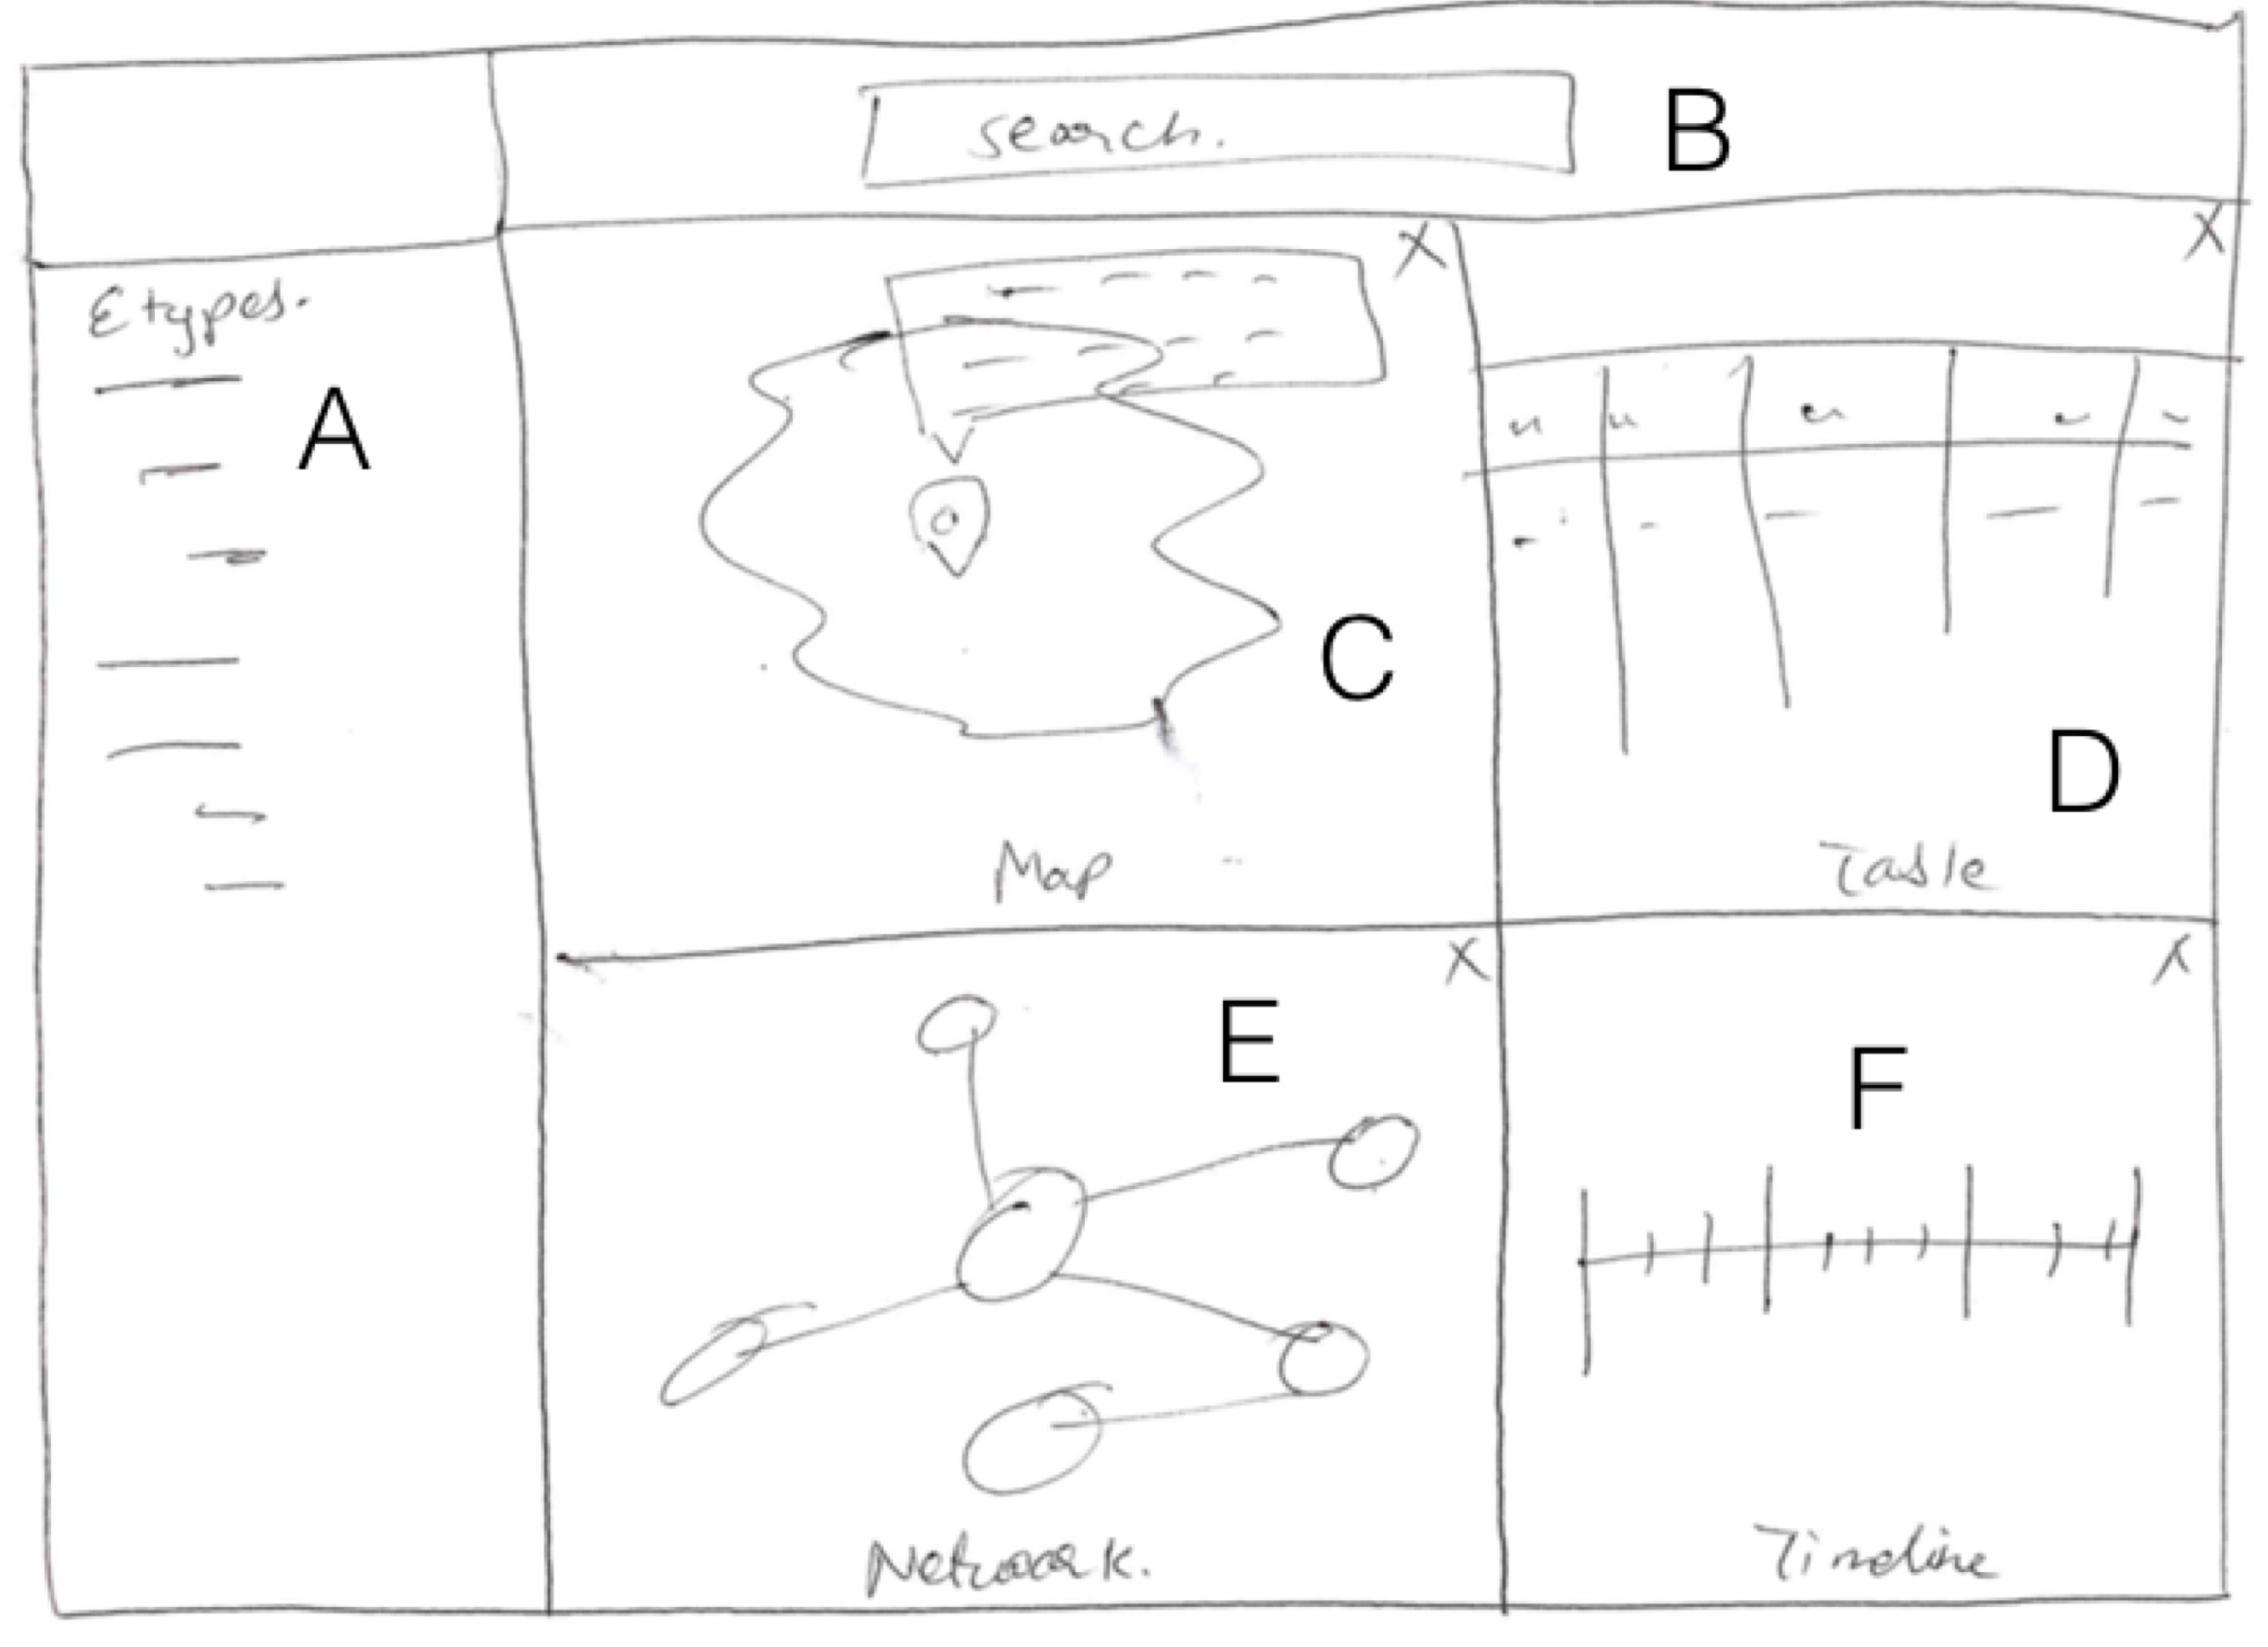 search.
B
Etypes.
A
X
X
C
Map
D
Table
X
E
Network.
X
F
Timeline